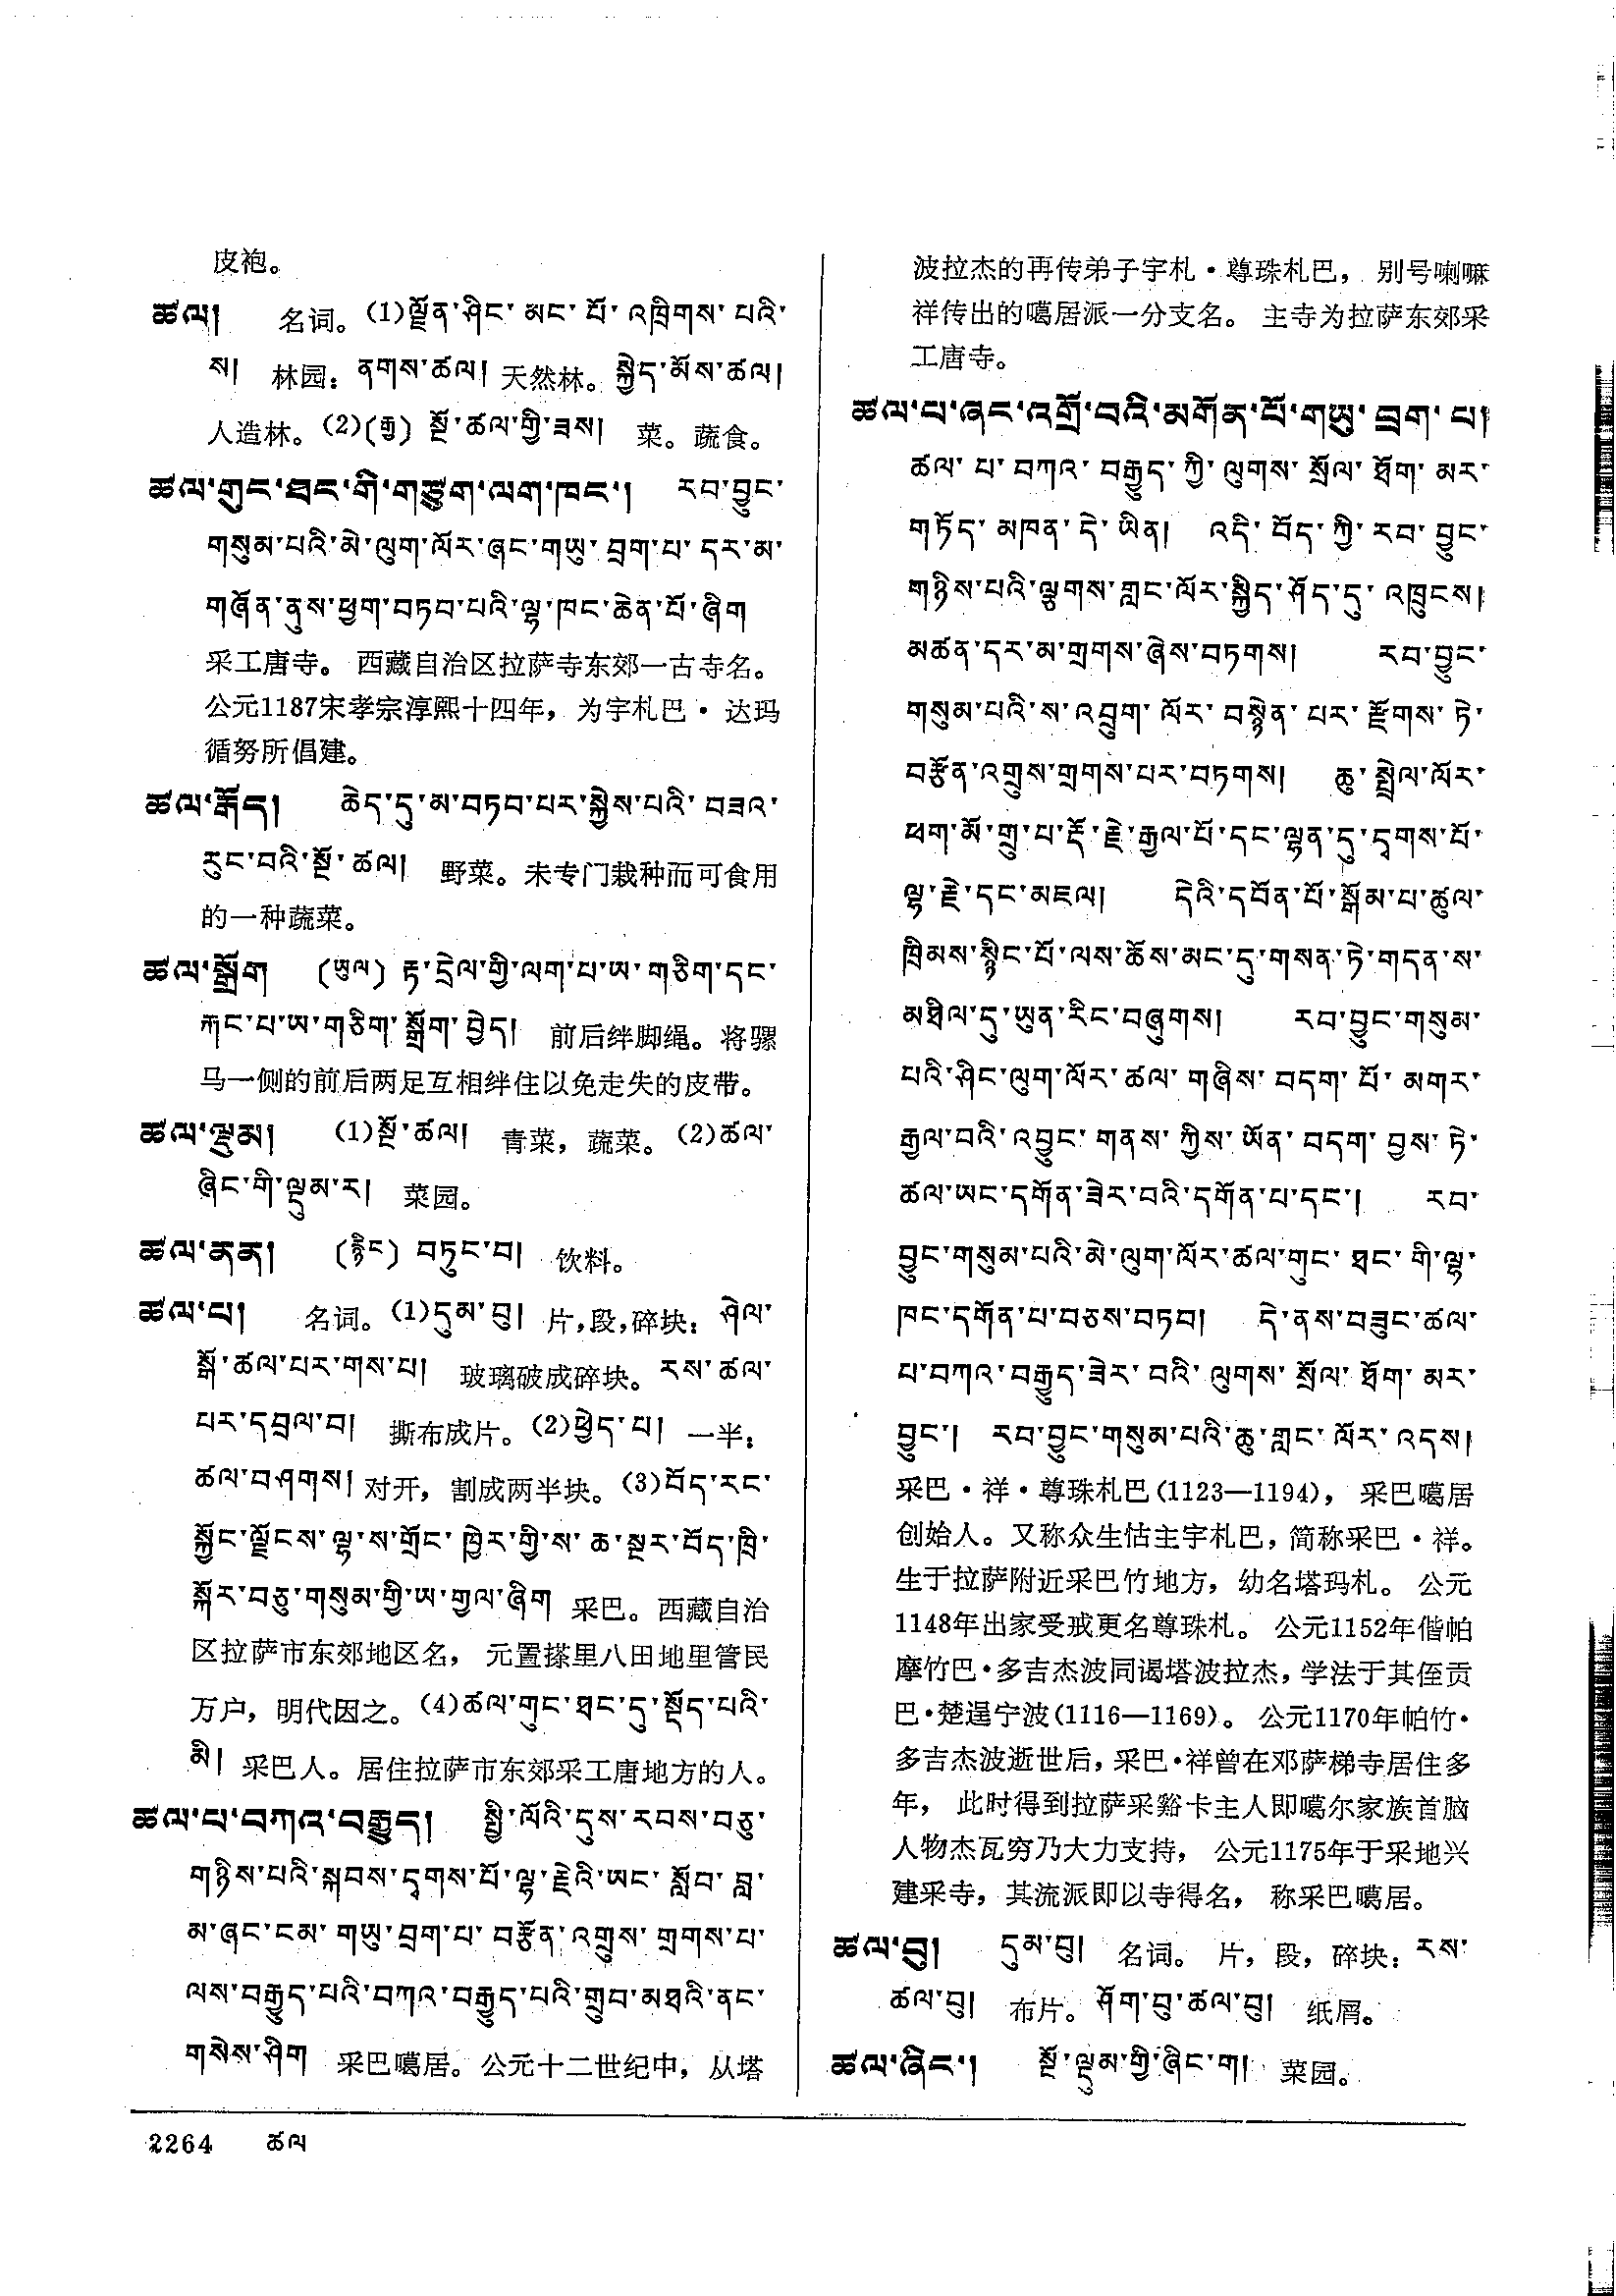 皮袍。
ཚལ། 名词。(1)ལྗོན་ཤིང་མང་པོ་འཁྲིགས་པའི་
ས། 林园：ནགས་ཚལ། 天然林。སྐྱེད་མོས་ཚལ།
人造林。(2)(རྒྱ) སྔོ་ཚལ་གྱི་ཟས། 菜。蔬食。
ཚལ་གུང་ཐང་གི་གཙུག་ལག་ཁང་། རབ་བྱུང་
གསུམ་པའི་མེ་ལུག་ལོར་ཞང་གཡུ་བྲག་པ་དར་མ་
གཞོན་ནུས་ཕྱག་བཏབ་པའི་ལྷ་ཁང་ཆེན་པོ་ཞིག
采工唐寺。西藏自治区拉萨寺东郊一古寺名。
公元1187宋孝宗淳熙十四年，为宇札巴·达玛
循努所倡建。
ཚལ་རྒོད། ཆེད་དུ་མ་བཏབ་པར་སྐྱེས་པའི་བཟའ་
རུང་བའི་སྔོ་ཚལ། 野菜。未专门栽种而可食用
的一种蔬菜。
ཚལ་སྒྲོག (ཡུལ) རྟ་དྲེལ་གྱི་ལག་པ་ཨ་གཅིག་དང་
རྐང་པ་ཨ་གཅིག་སྒྲོག་བྱེད། 前后绊脚绳。将骡
马一侧的前后两足互相绊住以免走失的皮带。
ཚལ་ལྡུམ། (1)སྔོ་ཚལ། 青菜，蔬菜。(2)ཚལ་
ཞིང་གི་ལྡུམ་ར། 菜园。
ཚལ་ནན། (རྙིང) བཏུང་བ། 饮料。
ཚལ་པ། 名词。(1)དུམ་བུ། 片，段，碎块：ཤེལ་
སྒོ་ཚལ་པར་གས་པ། 玻璃破成碎块。རས་ཚལ་
པར་དབྲལ་བ། 撕布成片。(2)ཕྱེད་པ། 一半：
ཚལ་བཤགས། 对开，割成两半块。(3)བོད་རང་
སྐྱོང་ལྗོངས་ལྷ་ས་གྲོང་ཁྱེར་གྱི་ས་ཆ་སྔར་བོད་ཁྲི་
སྐོར་བཅུ་གསུམ་གྱི་ཡ་གྱལ་ཞིག 采巴。西藏自治
区拉萨市东郊地区名，元置搽里八田地里管民
万户，明代因之。(4)ཚལ་གུང་ཐང་དུ་སྡོད་པའི་
མི། 采巴人。居住拉萨市东郊采工唐地方的人。
ཚལ་པ་བཀའ་བརྒྱུད། སྤྱི་ལོའི་དུས་རབས་བཅུ་
གཉིས་པའི་སྐབས་དྭགས་པོ་ལྷ་རྗེའི་ཡང་སློབ་བླ་
མ་ཞང་ངམ་གཡུ་བྲག་པ་བརྩོན་འགྲུས་གྲགས་པ་
ལས་བརྒྱུད་པའི་བཀའ་བརྒྱུད་པའི་གྲུབ་མཐའི་ནང་
གསེས་ཤིག 采巴噶居。公元十二世纪中，从塔
波拉杰的再传弟子宇札·尊珠札巴，别号喇嘛
祥传出的噶居派一分支名。主寺为拉萨东郊采
工唐寺。
ཚལ་པ་ཞང་འགྲོ་བའི་མགོན་པོ་གཡུ་བྲག་པ།
ཚལ་པ་བཀའ་བརྒྱུད་ཀྱི་ལུགས་སྲོལ་ཐོག་མར་
གཏོད་མཁན་དེ་ཡིན། འདི་བོད་ཀྱི་རབ་བྱུང་
གཉིས་པའི་ལྕགས་གླང་ལོར་སྐྱིད་ཤོད་དུ་འཁྲུངས།
མཚན་དར་མ་གྲགས་ཞེས་བཏགས། རབ་བྱུང་
གསུམ་པའི་ས་འབྲུག་ལོར་བསྙེན་པར་རྫོགས་ཏེ་
བརྩོན་འགྲུས་གྲགས་པར་བཏགས། ཆུ་སྤྲེལ་ལོར་
ཕག་མོ་གྲུ་པ་རྡོ་རྗེ་རྒྱལ་པོ་དང་ལྷན་དུ་དྭགས་པོ་
ལྷ་རྗེ་དང་མཇལ། དེའི་དབོན་པོ་སྒོམ་པ་ཚུལ་
ཁྲིམས་སྙིང་པོ་ལས་ཆོས་མང་དུ་གསན་ཏེ་གདན་ས་
མཐིལ་དུ་ཡུན་རིང་བཞུགས། རབ་བྱུང་གསུམ་
པའི་ཤིང་ལུག་ལོར་ཚལ་གཞིས་བདག་པོ་མགར་
རྒྱལ་བའི་འབྱུང་གནས་ཀྱིས་ཡོན་བདག་བྱས་ཏེ་
ཚལ་ཡང་དགོན་ཟེར་བའི་དགོན་པ་དང་། རབ་
བྱུང་གསུམ་པའི་མེ་ལུག་ལོར་ཚལ་གུང་ཐང་གི་ལྷ་
ཁང་དགོན་པ་བཅས་བཏབ། དེ་ནས་བཟུང་ཚལ་
པ་བཀའ་བརྒྱུད་ཟེར་བའི་ལུགས་སྲོལ་ཐོག་མར་
བྱུང་། རབ་བྱུང་གསུམ་པའི་ཆུ་གླང་ལོར་འདས།
采巴·祥·尊珠札巴(1123—1194)，采巴噶居
创始人。又称众生怙主宇札巴，简称采巴·祥。
生于拉萨附近采巴竹地方，幼名塔玛札。公元
1148年出家受戒更名尊珠札。公元1152年偕帕
摩竹巴·多吉杰波同谒塔波拉杰，学法于其侄贡
巴·楚逞宁波(1116—1169)。公元1170年帕竹·
多吉杰波逝世后，采巴·祥曾在邓萨梯寺居住多
年，此时得到拉萨采谿卡主人即噶尔家族首脑
人物杰瓦穷乃大力支持，公元1175年于采地兴
建采寺，其流派即以寺得名，称采巴噶居。
ཚལ་བུ། དུམ་བུ། 名词。片，段，碎块：རས་
ཚལ་བུ། 布片。ཤོག་བུ་ཚལ་བུ། 纸屑。
ཚལ་ཞིང་། སྔོ་ལྡུམ་གྱི་ཞིང་ག། 菜园。
2264 ཚལ